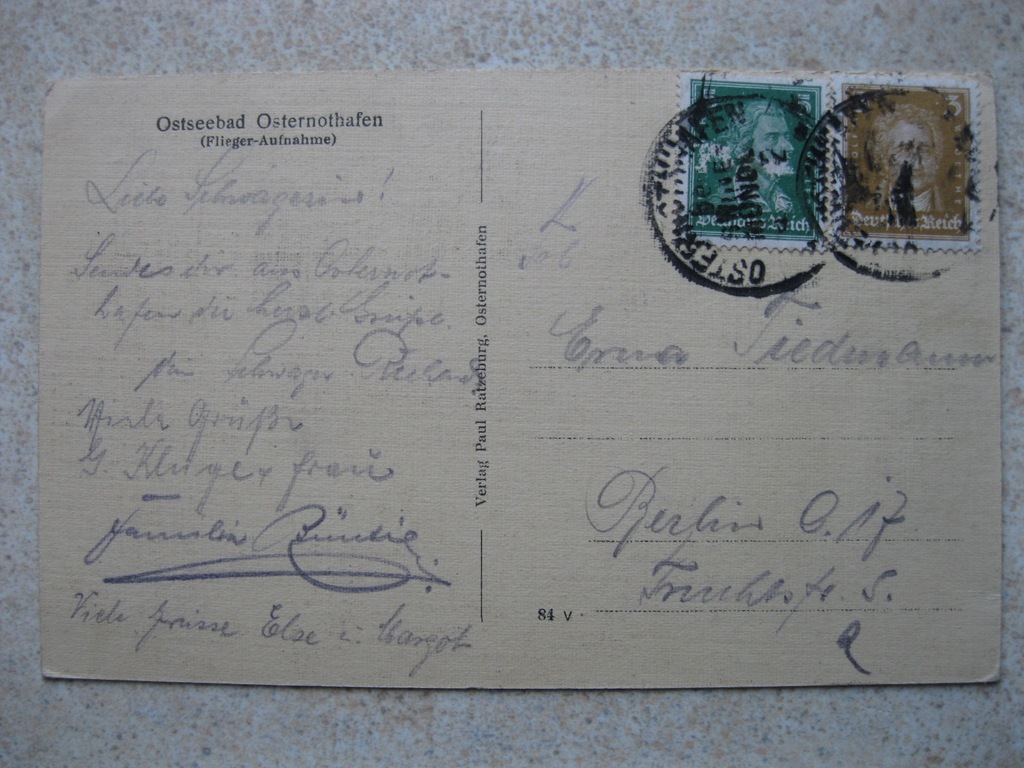 Ostseebad Osternothafen
(Flieger-Aufnahme)
Liebe Schwägerin!
Sende dir aus Osternot-
hafen die
Schwager Richard
Viele Grüße
G. Kluge u Frau
Familie
Viele Grüsse Else u. Margot
Verlag Paul Ratzeburg, Osternothafen
84 V
5
Deutsches Reich
3
Deutsches Reich
Erna Tiedemann
Berlin O. 17
Fruchtstr. 5.